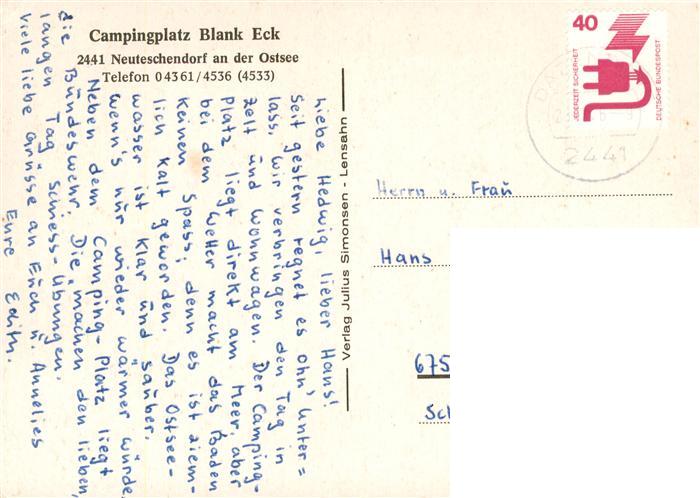 Campingplatz Blank Eck
2441 Neuteschendorf an der Ostsee
Telefon 04361/4536 (4533)
Liebe Hedwig, lieber Hans!
Seit gestern regnet es ohn' Unter=
lass, wir verbringen den Tag in
Zelt und Wohnwagen. Der Camping-
Platz liegt direkt am Meer, aber
bei dem Wetter macht das Baden
keinen Spass, denn es ist ziem-
lich kalt geworden. Das Ostsee-
wasser ist klar und „sauber.
wenn's nur wieder wärmer würde.
Neben dem Camping-Platz liegt
die Bundeswehr. Die „machen den lieben,
langen Tag Schiess-Übungen.
Viele liebe Grüsse an Euch u. Annelies
Eure Edith.
Verlag Julius Simonsen - Lensahn
40
JEDERZEIT SICHERHEIT
DEUTSCHE BUNDESPOST
2441
Herrn u. Frau
Hans
675
Sch